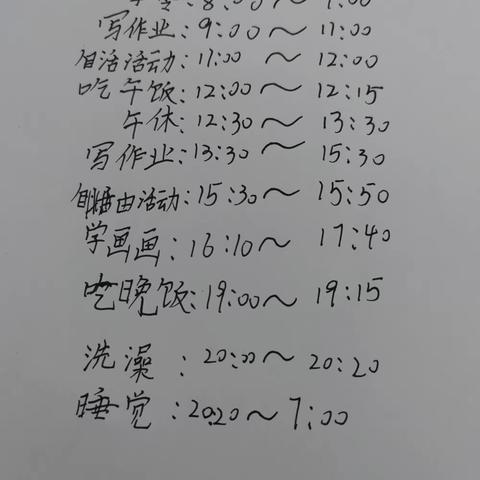 8:00～9:00
写作业:9:00～11:00
自活活动:11:00～12:00
吃午饭:12:00～12:15
午休:12:30～13:30
写作业:13:30～15:30
自由活动:15:30～15:50
学画画:16:10～17:40
吃晚饭:19:00～19:15
洗澡:20:00～20:20
睡觉:20:20～7:00